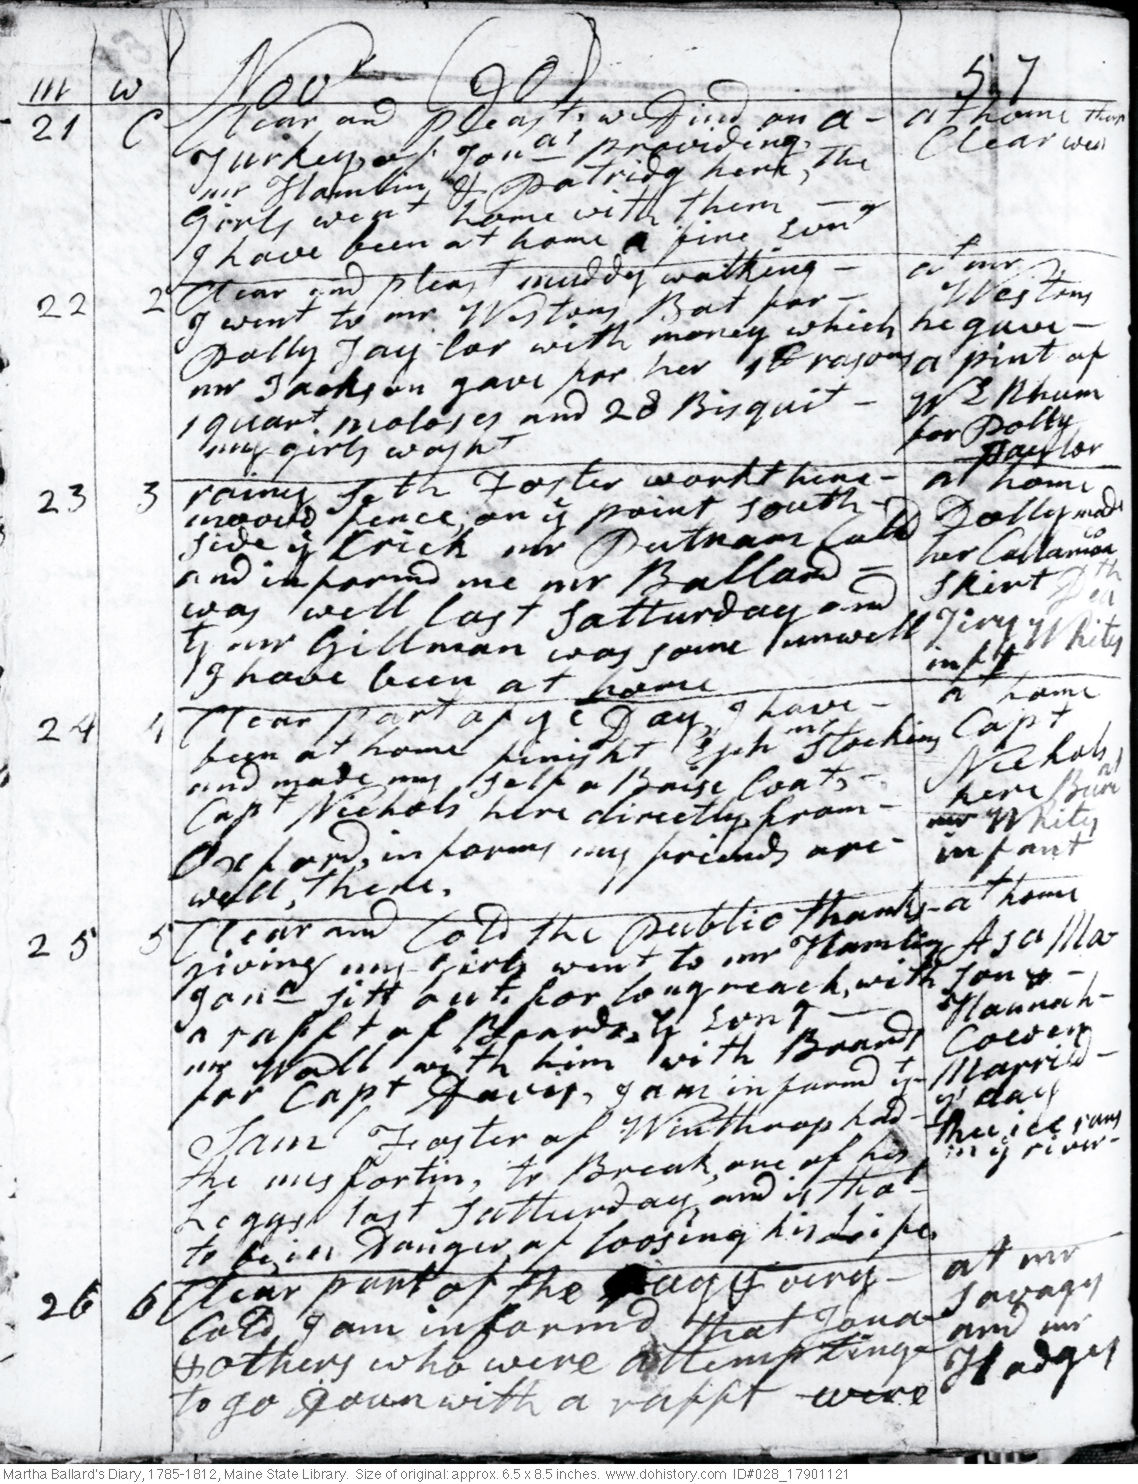 m w Novr (90) 57
21 C Clear and pleast. we dind on a -
Turkey of Jonas providing.
mr Hamlin & Patridg here, the
Girls went home with them -
I have been at home a fine Son
at home
Clear
22 2 Clear and pleast muddy walking -
I went to mr Westons Bot for -
Polly Taylor with money which
mr Jackson gave for her 1 lb rasons
1 quart moloses and 28 Bisquit -
my girls washt
at mr
Westons
he gave -
a pint of
W E Rhum
for Polly
Taylor
23 3 rainy Seth Foster workt here -
moovd fence on ye point South -
side ye Crick mr Putnam Calld
and informd me mr Ballard -
was well last Satturday and
ty mr Gillman was some unwell
I have been at home
at home
Dolly made
her Callamia
Skirt Dth
Jery Whites
inft
24 4 Clear part of ye Day, I have -
been at home finisht Ephms Stockins
and made my self a Baise Coat, -
Capt Nichols here directly from -
Oxford, informs my friends are -
well, there.
at home
Capt
Nichols
here Burial
mr Whites
infant
25 5 Clear and Cold the publick thanks -
giving my girls went to mr Hamlins
Jona sitt out for long reach, with
a rafft of Boards, & Son
mr Wall with him with Boards
for Capt Davis, I am informd ty -
Sam Foster of Winthrop had -
the misfortin, to Break, one of his
Leggs last Satturday, and is thot -
to be in Danger of loosing his Life.
at home
Asa Ma
son &
Hannah -
Cowen
Married -
ys day
the ice runs
in ye river -
26 6 Clear part of the Day & very -
Cold, I am informd that Jona
& others who were attempting -
to go down with a rafft were
at mr
Savages
and mr
Hodges
Martha Ballard's Diary, 1785-1812, Maine State Library. Size of original: approx. 6.5 x 8.5 inches. www.dohistory.com ID#028_17901121